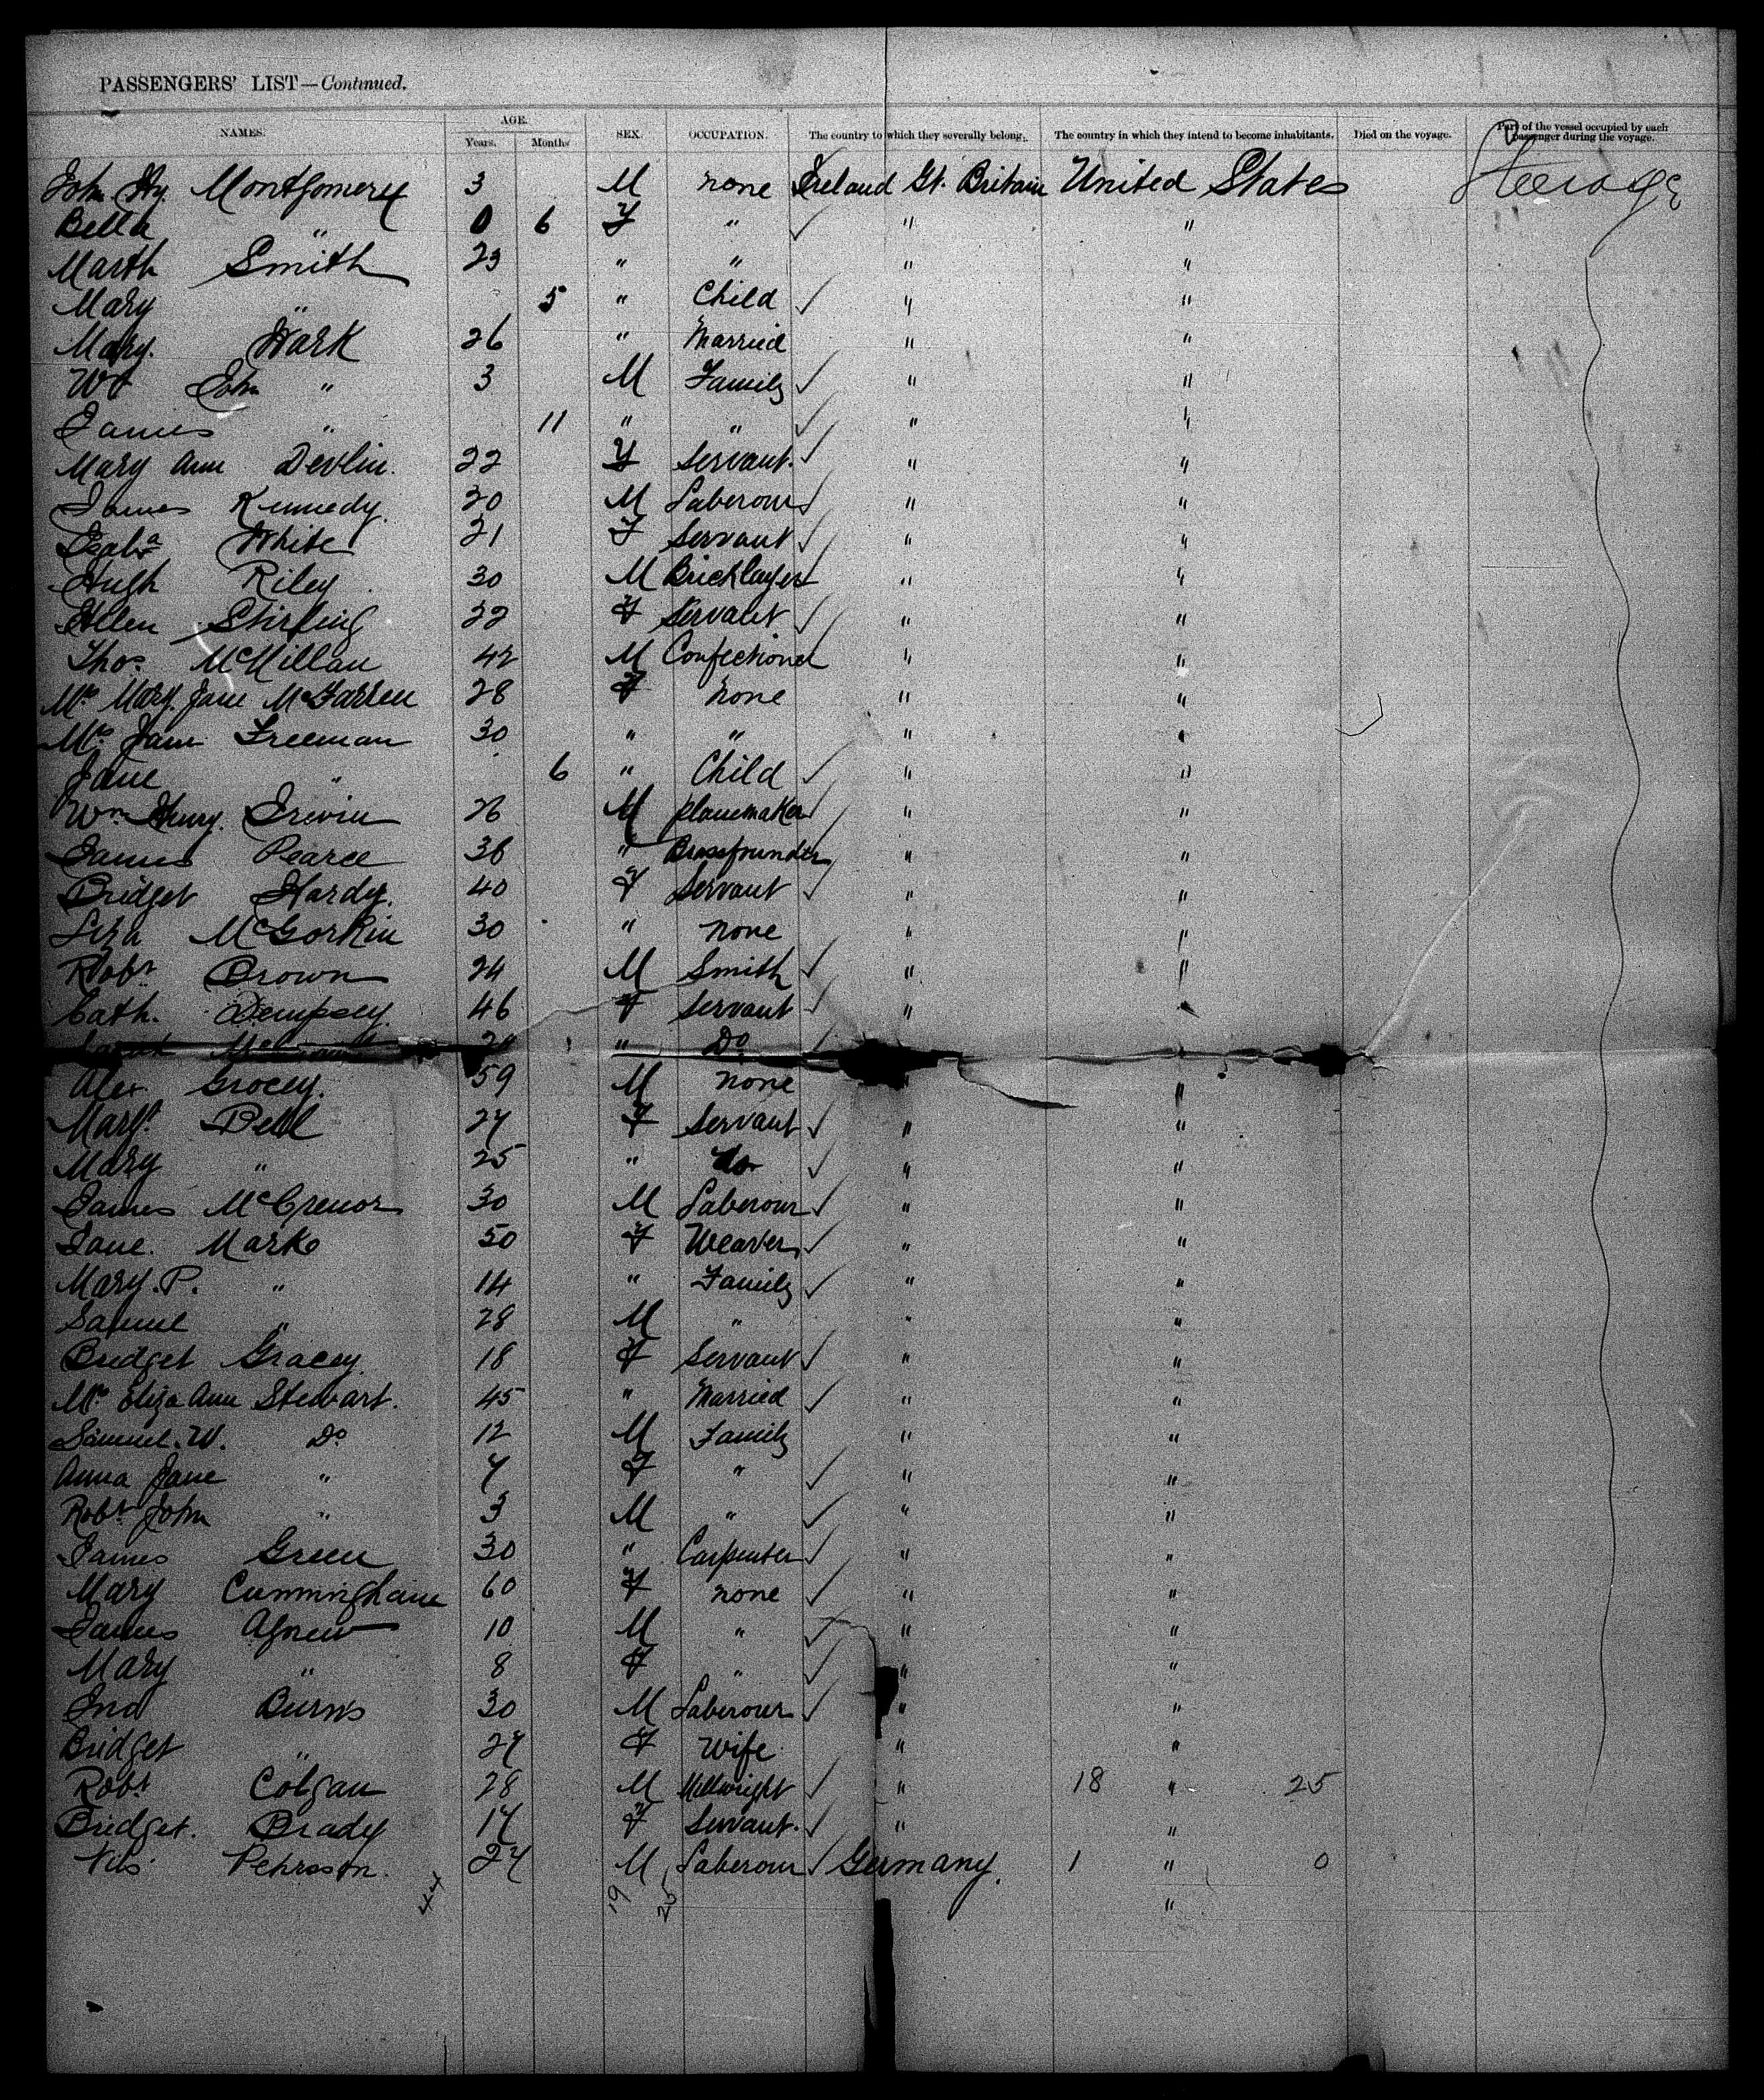 PASSENGERS' LIST—Continued.
NAMES. AGE. Years. Months SEX. OCCUPATION. The country to which they severally belong. The country in which they intend to become inhabitants. Died on the voyage. Part of the vessel occupied by each passenger during the voyage.
John Hy. Montgomery 3 M none Ireland Gt. Britain United States Steerage
Bella " 0 6 F " ✓ " "
Marth Smith 23 " " " "
Mary " 5 " Child ✓ " "
Mary. Wark 26 " Married " "
Wm John " 3 M Family ✓ " "
James " 11 " " ✓ " "
Mary Ann Devlin. 22 F Servant. ✓ " "
James Kennedy. 20 M Laberour ✓ " "
Isabª White 21 F Servant ✓ " "
Hugh Riley 30 M Bricklayer " "
Ellen Stirling 22 F Servant ✓ " "
Thos. McMillan 42 M Confectioner " "
Mrs Mary. Jane McGarren 28 F none " "
Mrs Jane Freeman 30 " " " "
Jane " 6 " Child ✓ " "
Wm Henry. Irwin 26 M planemaker ✓ " "
James Pearce 36 " Brassfounder " "
Bridget Hardy. 40 F Servant ✓ " "
Liza McGorkin 30 " none " "
Robt Brown 24 M Smith ✓ " "
Cath. Dempsey. 46 F Servant ✓ " "
" Do ✓
Alex Grocey. 59 M none " "
Margt Bell 27 F Servant ✓ " "
Mary " 25 " do ✓ " "
James McCrenor 30 M Laberour ✓ " "
Jane. Marks 50 F Weaver ✓ " "
Mary. P. " 14 " Family ✓ " "
Samuel " 28 M " " "
Bridget Gracey 18 F Servant ✓ " "
Mrs Eliza Ann Stewart. 45 " Married ✓ " "
Samuel. W. Do 12 M Family " "
Anna Jane " 7 F " ✓ " "
Robt John " 3 M " ✓ " "
James Green 30 " Carpenter ✓ " "
Mary Cunningham 60 F none ✓ " "
James Agnew 10 M " ✓ " "
Mary " 8 F " ✓ " "
Jno Burns 30 M Laberour ✓ " "
Bridget " 27 F Wife " "
Robt Colgan 28 M Millwright ✓ " 18 " 25
Bridget. Brady 17 F Servant. ✓ " "
Nils Pehrsson. 27 M Laberour ✓ Germany. 1 " 0
44 19 25 "